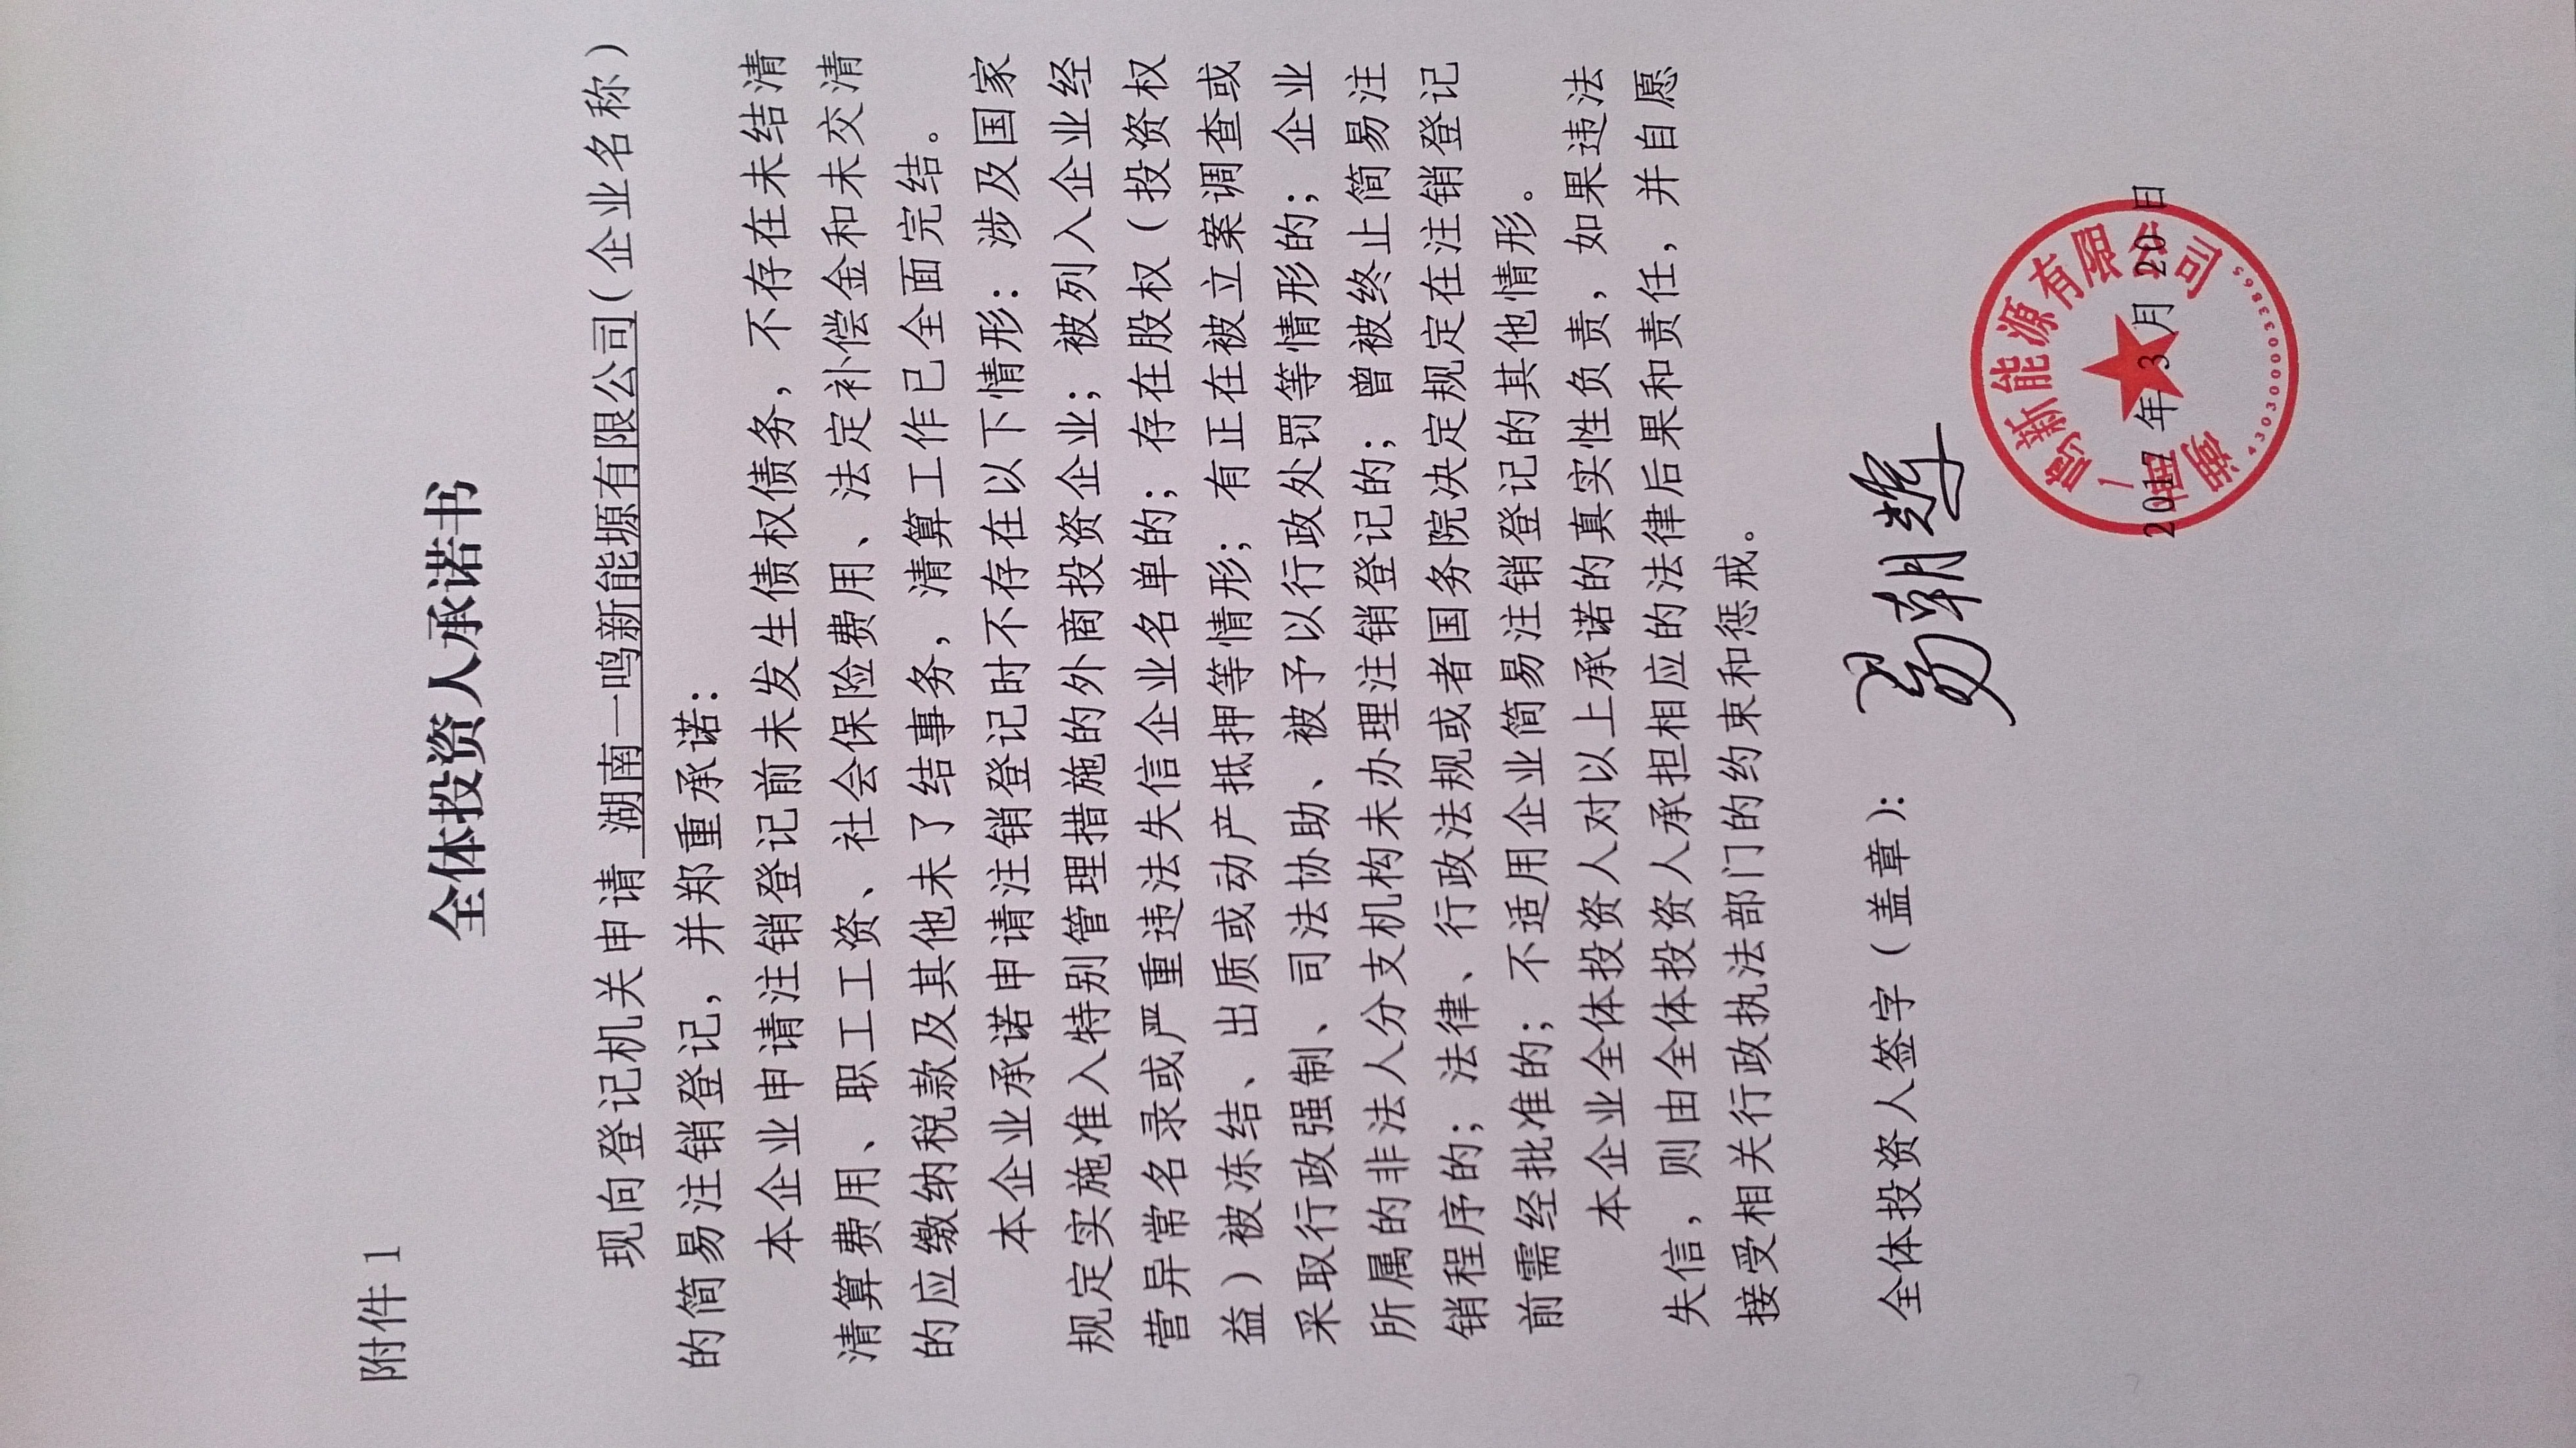 附件1
全体投资人承诺书
现向登记机关申请 湖南一鸣新能塬有限公司(企业名称)
的简易注销登记，并郑重承诺：
本企业申请注销登记前未发生债权债务，不存在未结清
清算费用、职工工资、社会保险费用、法定补偿金和未交清
的应缴纳税款及其他未了结事务，清算工作已全面完结。
本企业承诺申请注销登记时不存在以下情形：涉及国家
规定实施准入特别管理措施的外商投资企业；被列入企业经
营异常名录或严重违法失信企业名单的；存在股权（投资权
益）被冻结、出质或动产抵押等情形；有正在被立案调查或
采取行政强制、司法协助、被予以行政处罚等情形的；企业
所属的非法人分支机构未办理注销登记的；曾被终止简易注
销程序的；法律、行政法规或者国务院决定规定在注销登记
前需经批准的；不适用企业简易注销登记的其他情形。
本企业全体投资人对以上承诺的真实性负责，如果违法
失信，则由全体投资人承担相应的法律后果和责任，并自愿
接受相关行政执法部门的约束和惩戒。
全体投资人签字（盖章）：易朝辉
2017年3月20日
湖南一鸣新能源有限公司
4303000033865